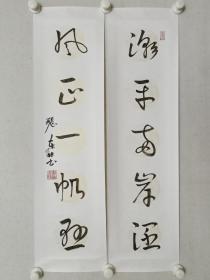 潮平两岸阔
风正一帆悬